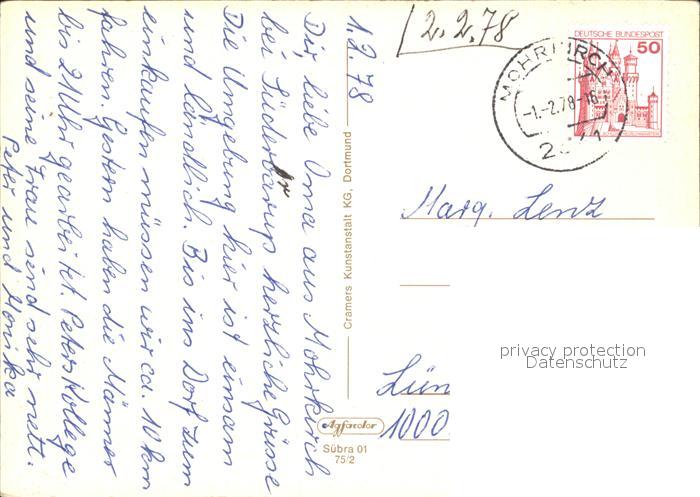 1.2.78
Dir, liebe Oma aus Mohrkirch
bei Süderbarup herzliche Grüsse
Die Umgebung hier ist einsam
und ländlich. Bis ins Dorf zum
einkaufen müssen wir ca. 10 km
fahren. Gestern haben die Männer
bis 21 Uhr gearbeitet. Peters Kollege
und seine Frau sind sehr nett.
Peter und Monika
12.2.78
DEUTSCHE BUNDESPOST
50
MOHRKIRCH
-1.-2.78-16
Marg. Lenz
Lün
1000
privacy protection
Datenschutz
Cramers Kunstanstalt KG, Dortmund
Agfacolor
Sübra 01
75/2